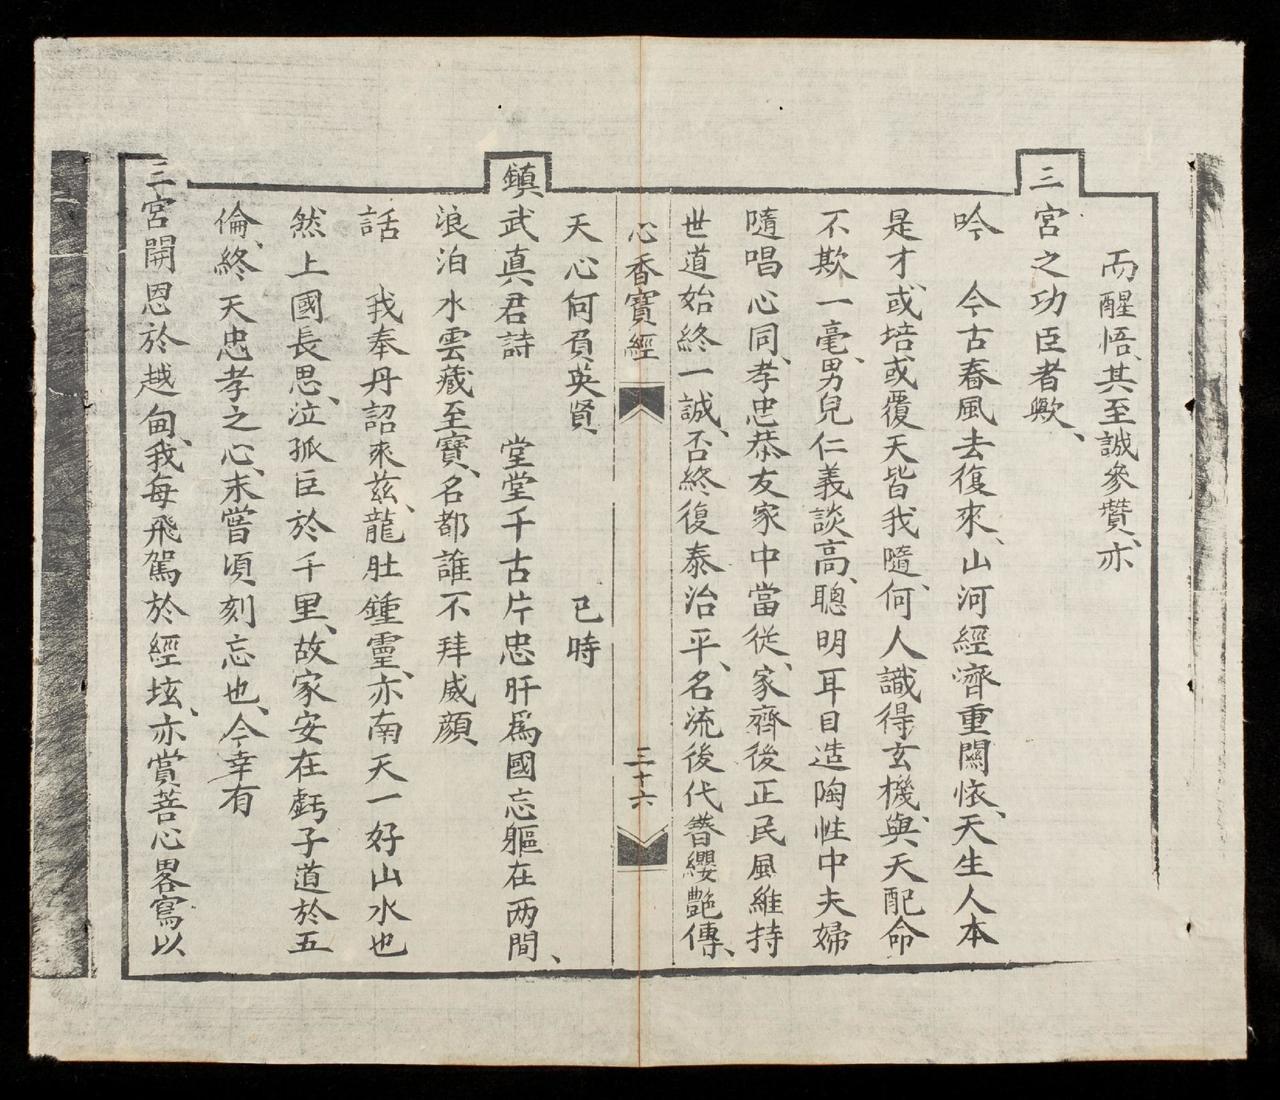 而醒悟、其至誠參贊、亦
三宮之功臣者歟、
吟　今古春風去復來、山河經濟重關懷、天生人本
是才、或培或覆天皆我隨、何人識得玄機、與天配命
不欺一毫、男兒仁義談高、聰明耳目造陶性中夫婦
隨唱心同、孝忠恭友家中當從、家齊後正民風維持
世道始終一誠、否終復泰治平、名流後代簪纓艷傳、
心香寶經　三十六
天心何負英賢　　已時
鎮武真君詩　堂堂千古片忠肝爲國忘軀在两間、
浪泊水雲藏至寶、名都誰不拜威顏
話　我奉丹詔來玆、龍肚鍾靈、亦南天一好山水也
然上國長思、泣孤臣於千里、故家安在虧子道於五
倫、終天忠孝之心、未嘗頃刻忘也、今幸有
三宮開恩於越甸、我每飛駕於經垓、亦賞菩心畧寫以